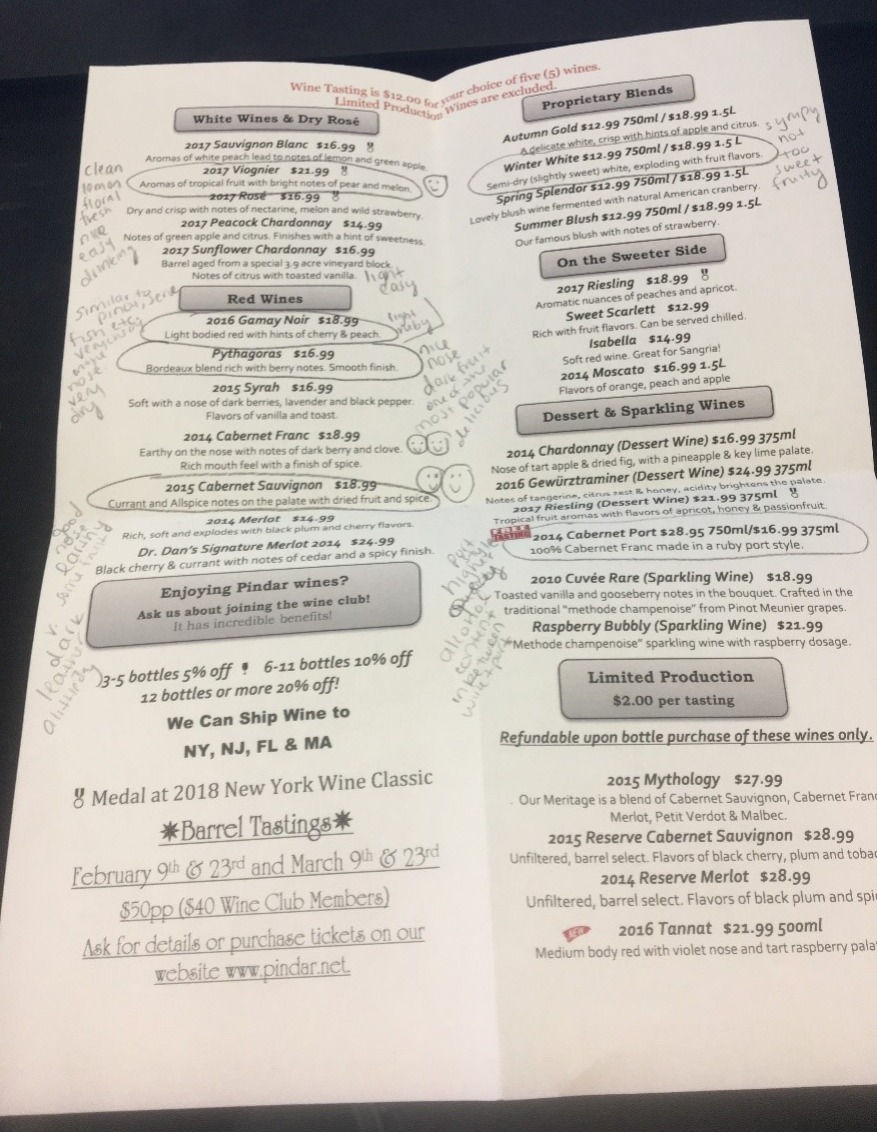 Wine Tasting is $12.00 for your choice of five (5) wines.
Limited Production Wines are excluded.
White Wines & Dry Rosé
2017 Sauvignon Blanc $16.99
Aromas of white peach lead to notes of lemon and green apple.
2017 Viognier $21.99
Aromas of tropical fruit with bright notes of pear and melon.
2017 Rosé $16.99
Dry and crisp with notes of nectarine, melon and wild strawberry.
2017 Peacock Chardonnay $14.99
Notes of green apple and citrus. Finishes with a hint of sweetness.
2017 Sunflower Chardonnay $16.99
Barrel aged from a special 3.9 acre vineyard block.
Notes of citrus with toasted vanilla.
clean
lemon
floral
fresh
nice
easy
drinking
Red Wines
2016 Gamay Noir $18.99
Light bodied red with hints of cherry & peach.
Pythagoras $16.99
Bordeaux blend rich with berry notes. Smooth finish.
2015 Syrah $16.99
Soft with a nose of dark berries, lavender and black pepper.
Flavors of vanilla and toast.
2014 Cabernet Franc $18.99
Earthy on the nose with notes of dark berry and clove.
Rich mouth feel with a finish of spice.
2015 Cabernet Sauvignon $18.99
Currant and Allspice notes on the palate with dried fruit and spice.
2014 Merlot $14.99
Rich, soft and explodes with black plum and cherry flavors.
Dr. Dan's Signature Merlot 2014 $24.99
Black cherry & currant with notes of cedar and a spicy finish.
light
easy
light
ruby
similar to
pinot,
fish etc
very
nose
very
dry
nice
nose
dark fruit
one of the
most popular
delicious
good
nose
fruit
v.
dark
leather
Enjoying Pindar wines?
Ask us about joining the wine club!
It has incredible benefits!
3-5 bottles 5% off ! 6-11 bottles 10% off
12 bottles or more 20% off!
We Can Ship Wine to
NY, NJ, FL & MA
Medal at 2018 New York Wine Classic
✷Barrel Tastings✷
February 9th & 23rd and March 9th & 23rd
$50pp ($40 Wine Club Members)
Ask for details or purchase tickets on our
website www.pindar.net.
Proprietary Blends
Autumn Gold $12.99 750ml / $18.99 1.5L
A delicate white, crisp with hints of apple and citrus.
Winter White $12.99 750ml / $18.99 1.5 L
Semi-dry (slightly sweet) white, exploding with fruit flavors.
Spring Splendor $12.99 750ml / $18.99 1.5L
Lovely blush wine fermented with natural American cranberry.
Summer Blush $12.99 750ml / $18.99 1.5L
Our famous blush with notes of strawberry.
not
too
sweet
fruity
On the Sweeter Side
2017 Riesling $18.99
Aromatic nuances of peaches and apricot.
Sweet Scarlett $12.99
Rich with fruit flavors. Can be served chilled.
Isabella $14.99
Soft red wine. Great for Sangria!
2014 Moscato $16.99 1.5L
Flavors of orange, peach and apple
Dessert & Sparkling Wines
2014 Chardonnay (Dessert Wine) $16.99 375ml
Nose of tart apple & dried fig, with a pineapple & key lime palate.
2016 Gewürztraminer (Dessert Wine) $24.99 375ml
Notes of tangerine, citrus zest & honey, acidity brightens the palate.
2017 Riesling (Dessert Wine) $21.99 375ml
Tropical fruit aromas with flavors of apricot, honey & passionfruit.
2014 Cabernet Port $28.95 750ml/$16.99 375ml
100% Cabernet Franc made in a ruby port style.
2010 Cuvée Rare (Sparkling Wine) $18.99
Toasted vanilla and gooseberry notes in the bouquet. Crafted in the
traditional "methode champenoise" from Pinot Meunier grapes.
Raspberry Bubbly (Sparkling Wine) $21.99
"Methode champenoise" sparkling wine with raspberry dosage.
port
higher
alcohol
content
in between
wine + port
Limited Production
$2.00 per tasting
Refundable upon bottle purchase of these wines only.
2015 Mythology $27.99
Our Meritage is a blend of Cabernet Sauvignon, Cabernet Franc
Merlot, Petit Verdot & Malbec.
2015 Reserve Cabernet Sauvignon $28.99
Unfiltered, barrel select. Flavors of black cherry, plum and tobac
2014 Reserve Merlot $28.99
Unfiltered, barrel select. Flavors of black plum and spi
NEW 2016 Tannat $21.99 500ml
Medium body red with violet nose and tart raspberry pala